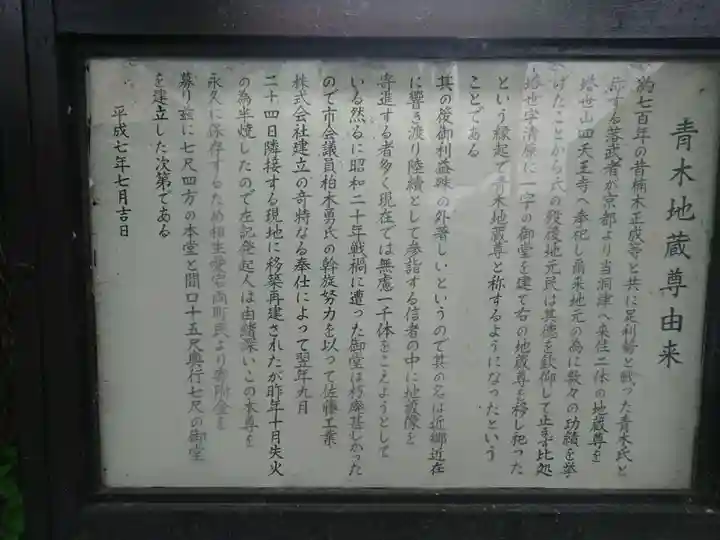 青木地蔵尊由来
約七百年の昔楠木正成等と共に足利勢と戦った青木氏と
称する若武者が京都より当洞津へ来住一体の地蔵尊を
塔世山四天王寺へ奉祀し爾来地元の為に数々の功績を挙
げたことから氏の歿後地元民は其徳を欽仰して止まず此処
塔世字清原に一宇の御堂を建て右の地蔵尊を移し祀った
という縁起で青木地蔵尊と称するようになったという
ことである
其の後御利益殊の外著しいというので其の名は近郷近在
に響き渡り陸続として参詣する信者の中に地蔵像を
寄進する者多く現在では無慮一千体をこえようとして
いる然るに昭和二十年戦禍に遭った御堂は朽廃甚しかった
ので市会議員柏木勇氏の斡旋努力を以って佐藤工業
株式会社建立の奇特なる奉仕によって翌年九月
二十四日隣接する現地に移築再建されたが昨年十月失火
の為半焼したので左記発起人は由緒深いこの本尊を
永久に保存するため相生愛宕両町民より寄附金を
募り茲に七尺四方の本堂と間口十五尺奥行七尺の御堂
を建立した次第である
平成七年七月吉日